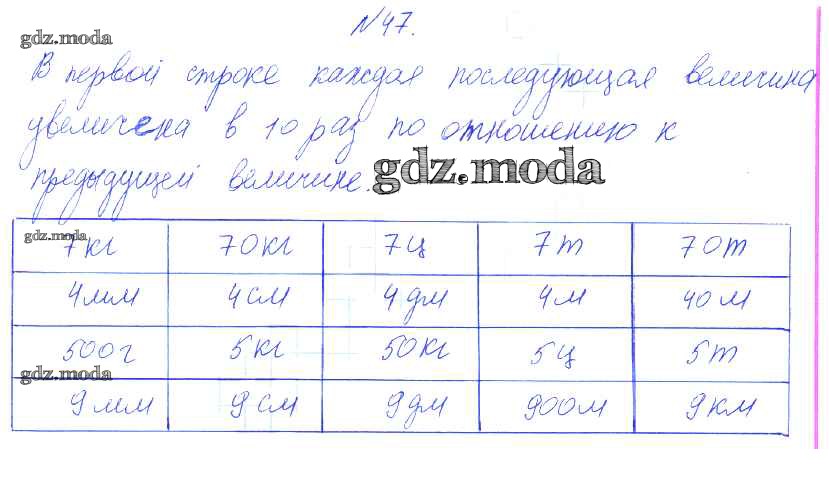 №47.
gdz.moda
В первой строке каждая последующая величина
увеличена в 10 раз по отношению к
предыдущей величине.
gdz.moda
gdz.moda
7кг 70кг 7ц 7т 70т
4мм 4см 4дм 4м 40м
500г 5кг 50кг 5ц 5т
gdz.moda
9мм 9см 9дм 900м 9км